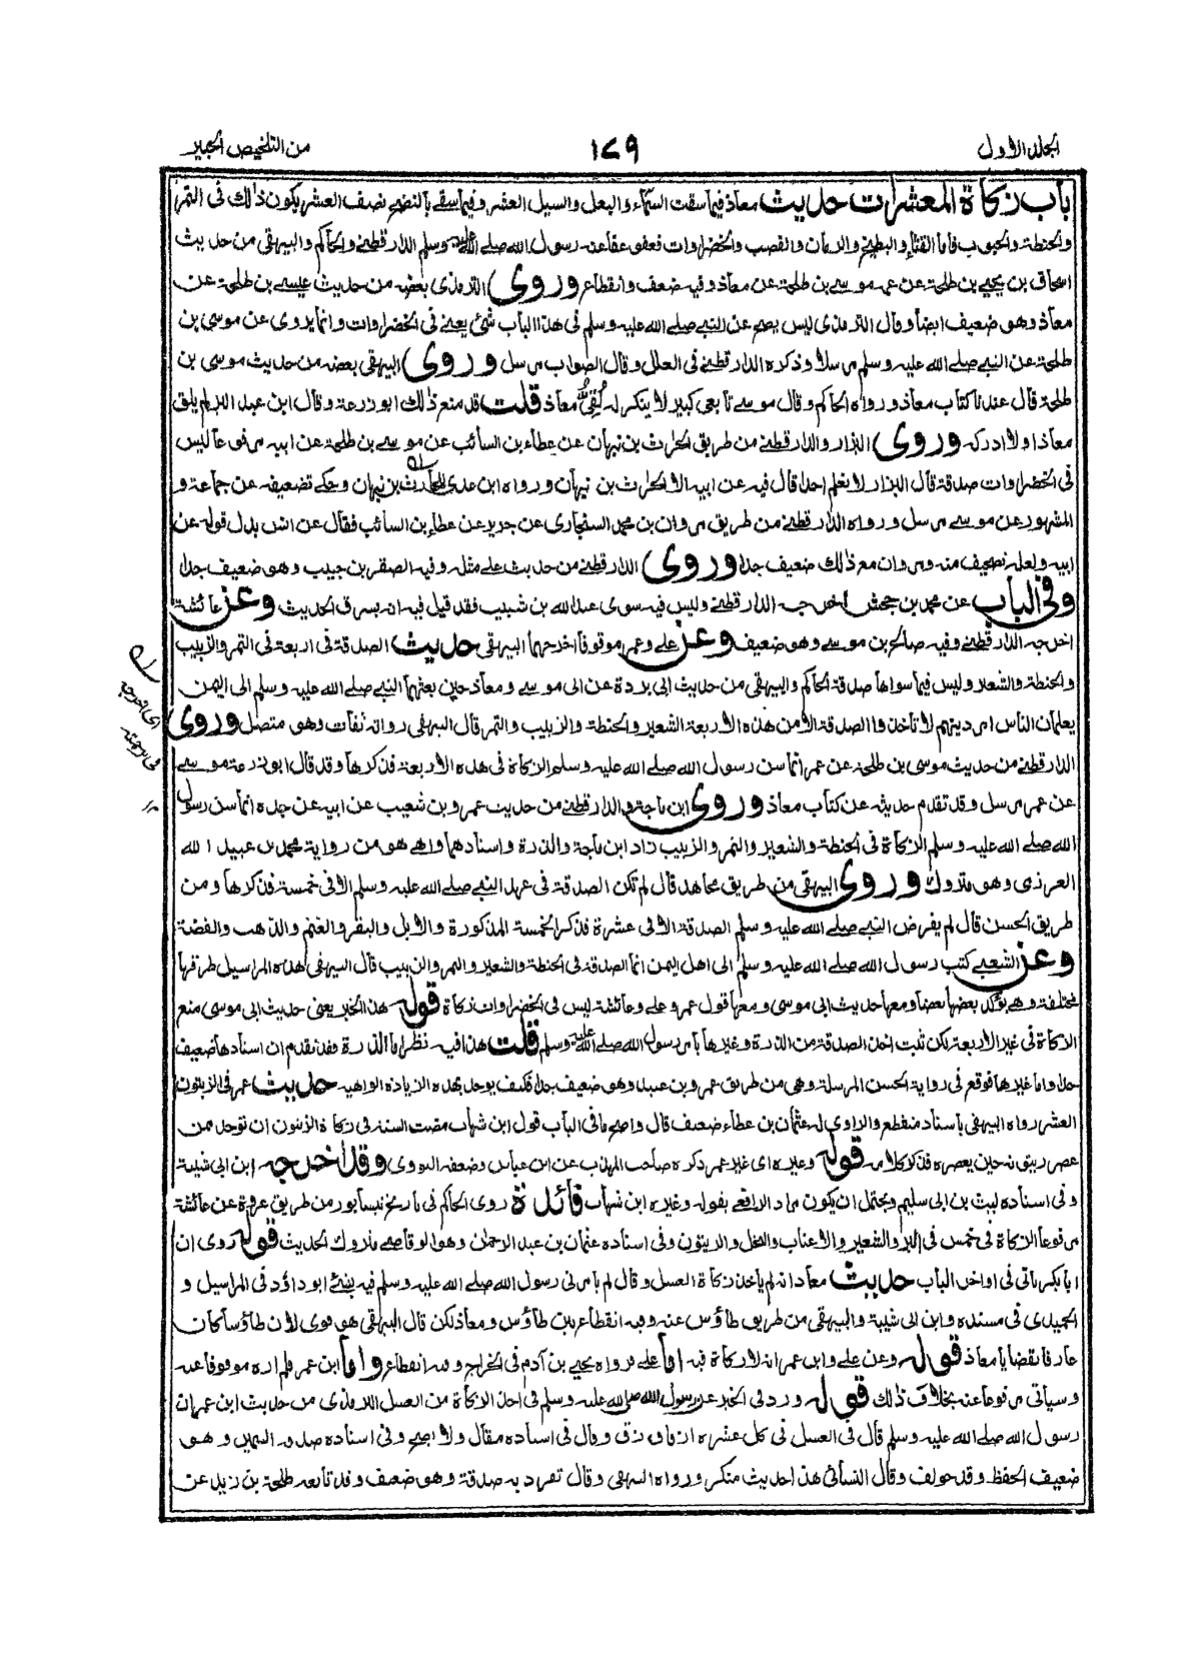 المجلد الاول
١٧٩
من التلخيص الحبير
باب زكاة المعشرات حديث معاذ فيما سقت السماء والبعل والسيل العشر وفيما سقى بالنضح نصف العشر يكون ذلك فى التمر
والحنطة والحبوب فاما القثاء والبطيخ والرمان والقصب والخضراوات فعفو عفا عنه رسول الله صلى الله عليه وسلم الدار قطنى والحاكم والبيهقى من حديث
اسحاق بن يحيى بن طلحة عن عمه موسى بن طلحة عن معاذ وفيه ضعف وانقطاع وروى الترمذى بعضه من حديث عيسى بن طلحة عن
معاذ وهو ضعيف ايضا وقال الترمذى ليس يصح عن النبى صلى الله عليه وسلم فى هذا الباب شئ يعنى فى الخضراوات وانما يروى عن موسى بن
طلحة عن النبى صلى الله عليه وسلم مرسلا وذكره الدار قطنى فى العلل وقال الصواب مرسل وروى البيهقى بعضه من حديث موسى بن
طلحة قال عندنا كتاب معاذ ورواه الحاكم وقال موسى تابعى كبير لا ينكر له لقى معاذ قلت قد منع ذلك ابو زرعة وقال ابن عبد البر لم يلق
معاذا ولا ادركه وروى البزار والدار قطنى من طريق الحارث بن نبهان عن عطاء بن السائب عن موسى بن طلحة عن ابيه مرفوعا ليس
فى الخضراوات صدقة قال البزار لا يعلم احدا قال فيه عن ابيه الا الحارث بن نبهان ورواه ابن عدى للحارث بن نبهان وحكى تضعيفه عن جماعة و
المشهور عن موسى مرسل ورواه الدار قطنى من طريق مروان بن محمد السنجارى عن جرير عن عطاء بن السائب فقال عن انس بدل قوله عن
ابيه ولعله تصحيف منه ومروان مع ذلك ضعيف جدا وروى الدار قطنى من حديث على مثله وفيه الصقر بن حبيب وهو ضعيف جدا
وفى الباب عن محمد بن جحش اخرجه الدار قطنى وليس فيه سوى عبد الله بن شبيب فقد قيل فيه انه يسرق الحديث وعن عائشة
اخرجه الدار قطنى وفيه صالح بن موسى وهو ضعيف وعن على وعمر موقوفا اخرجهما البيهقى حديث الصدقة فى اربعة فى التمر والزبيب
والحنطة والشعير وليس فيما سواها صدقة الحاكم والبيهقى من حديث ابى بردة عن ابى موسى ومعاذ حين بعثهما النبى صلى الله عليه وسلم الى اليمن
يعلمان الناس امر دينهم لا تاخذوا الصدقة الا من هذه الاربعة الشعير والحنطة والزبيب والتمر قال البيهقى رواته ثقات وهو متصل وروى
الدار قطنى من حديث موسى بن طلحة عن عمر انما سن رسول الله صلى الله عليه وسلم الزكاة فى هذه الاربعة فذكرها وقد قال ابو زرعة موسى
عن عمر مرسل وقد تقدم حديثه عن كتاب معاذ وروى ابن ماجة والدار قطنى من حديث عمرو بن شعيب عن ابيه عن جده انما سن رسول
الله صلى الله عليه وسلم الزكاة فى الحنطة والشعير والتمر والزبيب زاد ابن ماجة والذرة واسنادهما واهى هو من رواية محمد بن عبيد الله
العرزمى وهو متروك وروى البيهقى من طريق مجاهد قال لم تكن الصدقة فى عهد النبى صلى الله عليه وسلم الا فى خمسة فذكرها ومن
طريق الحسن قال لم يفرض النبى صلى الله عليه وسلم الصدقة الا فى عشرة فذكر الخمسة المذكورة والابل والبقر والغنم والذهب والفضة
وعن الشعبى كتب رسول الله صلى الله عليه وسلم الى اهل اليمن انما الصدقة فى الحنطة والشعير والتمر والزبيب قال البيهقى هذه المراسيل طرقها
مختلفة وهى يؤكد بعضها بعضا ومعها حديث ابى موسى ومعها قول عمر وعلى وعائشة ليس فى الخضراوات زكاة قوله هذا الخبر يعنى حديث ابى موسى منع
الزكاة فى غير الاربعة لكن ثبت اخذ الصدقة من الذرة وغيرها بامر رسول الله صلى الله عليه وسلم قلت هذا فيه نظر اما الذرة فقد تقدم ان اسنادها ضعيف
جدا واما غيرها فوقع فى رواية الحسن المرسلة وهى من طريق عمرو بن عبيد وهو ضعيف جدا فكيف يوخذ بهذه الزيادة الواهية حديث عمر فى الزيتون
العشر رواه البيهقى باسناد منقطع والراوى له عثمان بن عطاء ضعيف قال واصح ما فى الباب قول ابن شهاب مضت السنة فى زكاة الزيتون ان توخذ ممن
عصر زيتونه حين يعصره فذكر كلامه قوله وغيره اى غير عمر ذكره صاحب المهذب عن ابن عباس وضعفه النووى وقد اخرجه ابن ابى شيبة
وفى اسناده ليث بن ابى سليم ويحتمل ان يكون مراد الرافعى بقوله وغيره ابن شهاب فائدة روى الحاكم فى تاريخ نيسابور من طريق عروة عن عائشة
مرفوعا الزكاة فى خمس فى البر والشعير والاعناب والنخل والزيتون وفى اسناده عثمان بن عبد الرحمان وهو الوقاصى متروك الحديث قوله روى ان
ابا بكر ياتى فى اواخر الباب حديث معاذ انه لم ياخذ زكاة العسل وقال لم يامرنى رسول الله صلى الله عليه وسلم فيه بشئ ابو داؤد فى المراسيل و
الحميدى فى مسنده وابن ابى شيبة والبيهقى من طريق طاؤس عنه وفيه انقطاع بين طاؤس ومعاذ لكن قال البيهقى هو قوى لان طاؤسا كان
عارفا بقضايا معاذ قوله وعن على وابن عمر انه لا زكاة فيه اما على فرواه يحيى بن آدم فى الخراج وفيه انقطاع واما ابن عمر فلم اره موقوفا عنه
وسياتى مرفوعا عنه بخلاف ذلك قوله ورد فى الخبر عن رسول الله صلى الله عليه وسلم فى اخذ الزكاة من العسل الترمذى من حديث ابن عمر ان
رسول الله صلى الله عليه وسلم قال فى العسل فى كل عشرة ازقاق زق وقال فى اسناده مقال ولا يصح وفى اسناده صدقة السمين وهو
ضعيف الحفظ وقد خولف وقال النسائى هذا حديث منكر ورواه البيهقى وقال تفرد به صدقة وهو ضعيف وقد تابعه طلحة بن زيد عن
اى اخرجه
فى ترجمته
١٢